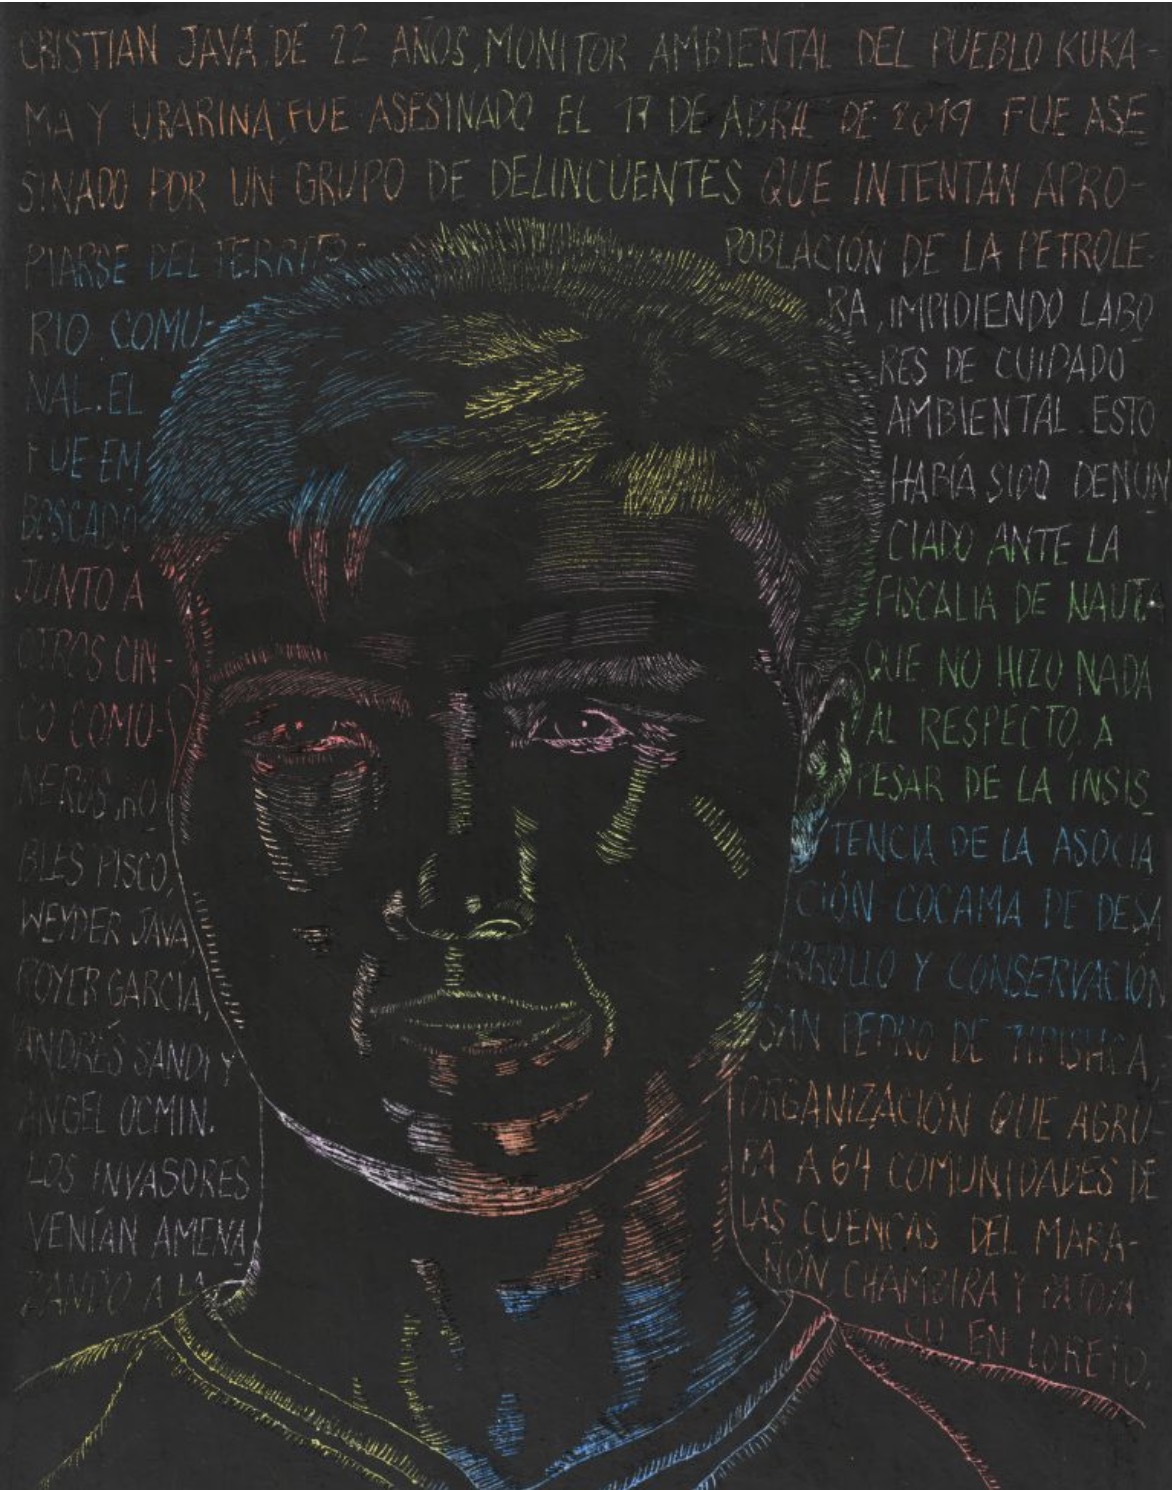 CRISTIAN JAVA, DE 22 AÑOS, MONITOR AMBIENTAL DEL PUEBLO KUKA-
MA Y URARINA, FUE ASESINADO EL 17 DE ABRIL DE 2019 FUE ASE
SINADO POR UN GRUPO DE DELINCUENTES QUE INTENTAN APRO-
PIARSE DEL TERRITO-
RIO COMU-
NAL. EL
FUE EM
BOSCADO
JUNTO A
OTROS CIN-
CO COMU-
NEROS, NO
BLES PISCO,
WEYDER JAVA,
ROYER GARCIA,
ANDRÉS SANDI Y
ÁNGEL OCMIN.
LOS INVASORES
VENÍAN AMENA
ZANDO A LA
POBLACIÓN DE LA PETROLE-
RA, IMPIDIENDO LABO
RES DE CUIDADO
AMBIENTAL ESTO
HABÍA SIDO DENUN
CIADO ANTE LA
FISCALIA DE NAUTA
QUE NO HIZO NADA
AL RESPECTO, A
PESAR DE LA INSIS
TENCIA DE LA ASOCIA
CIÓN COCAMA DE DESA
RROLLO Y CONSERVACIÓN
SAN PEDRO DE TIPISHCA,
ORGANIZACIÓN QUE AGRU-
PA A 64 COMUNIDADES DE
LAS CUENCAS DEL MARA-
ÑÓN, CHAMBIRA Y PATOYA
CU EN LORETO.